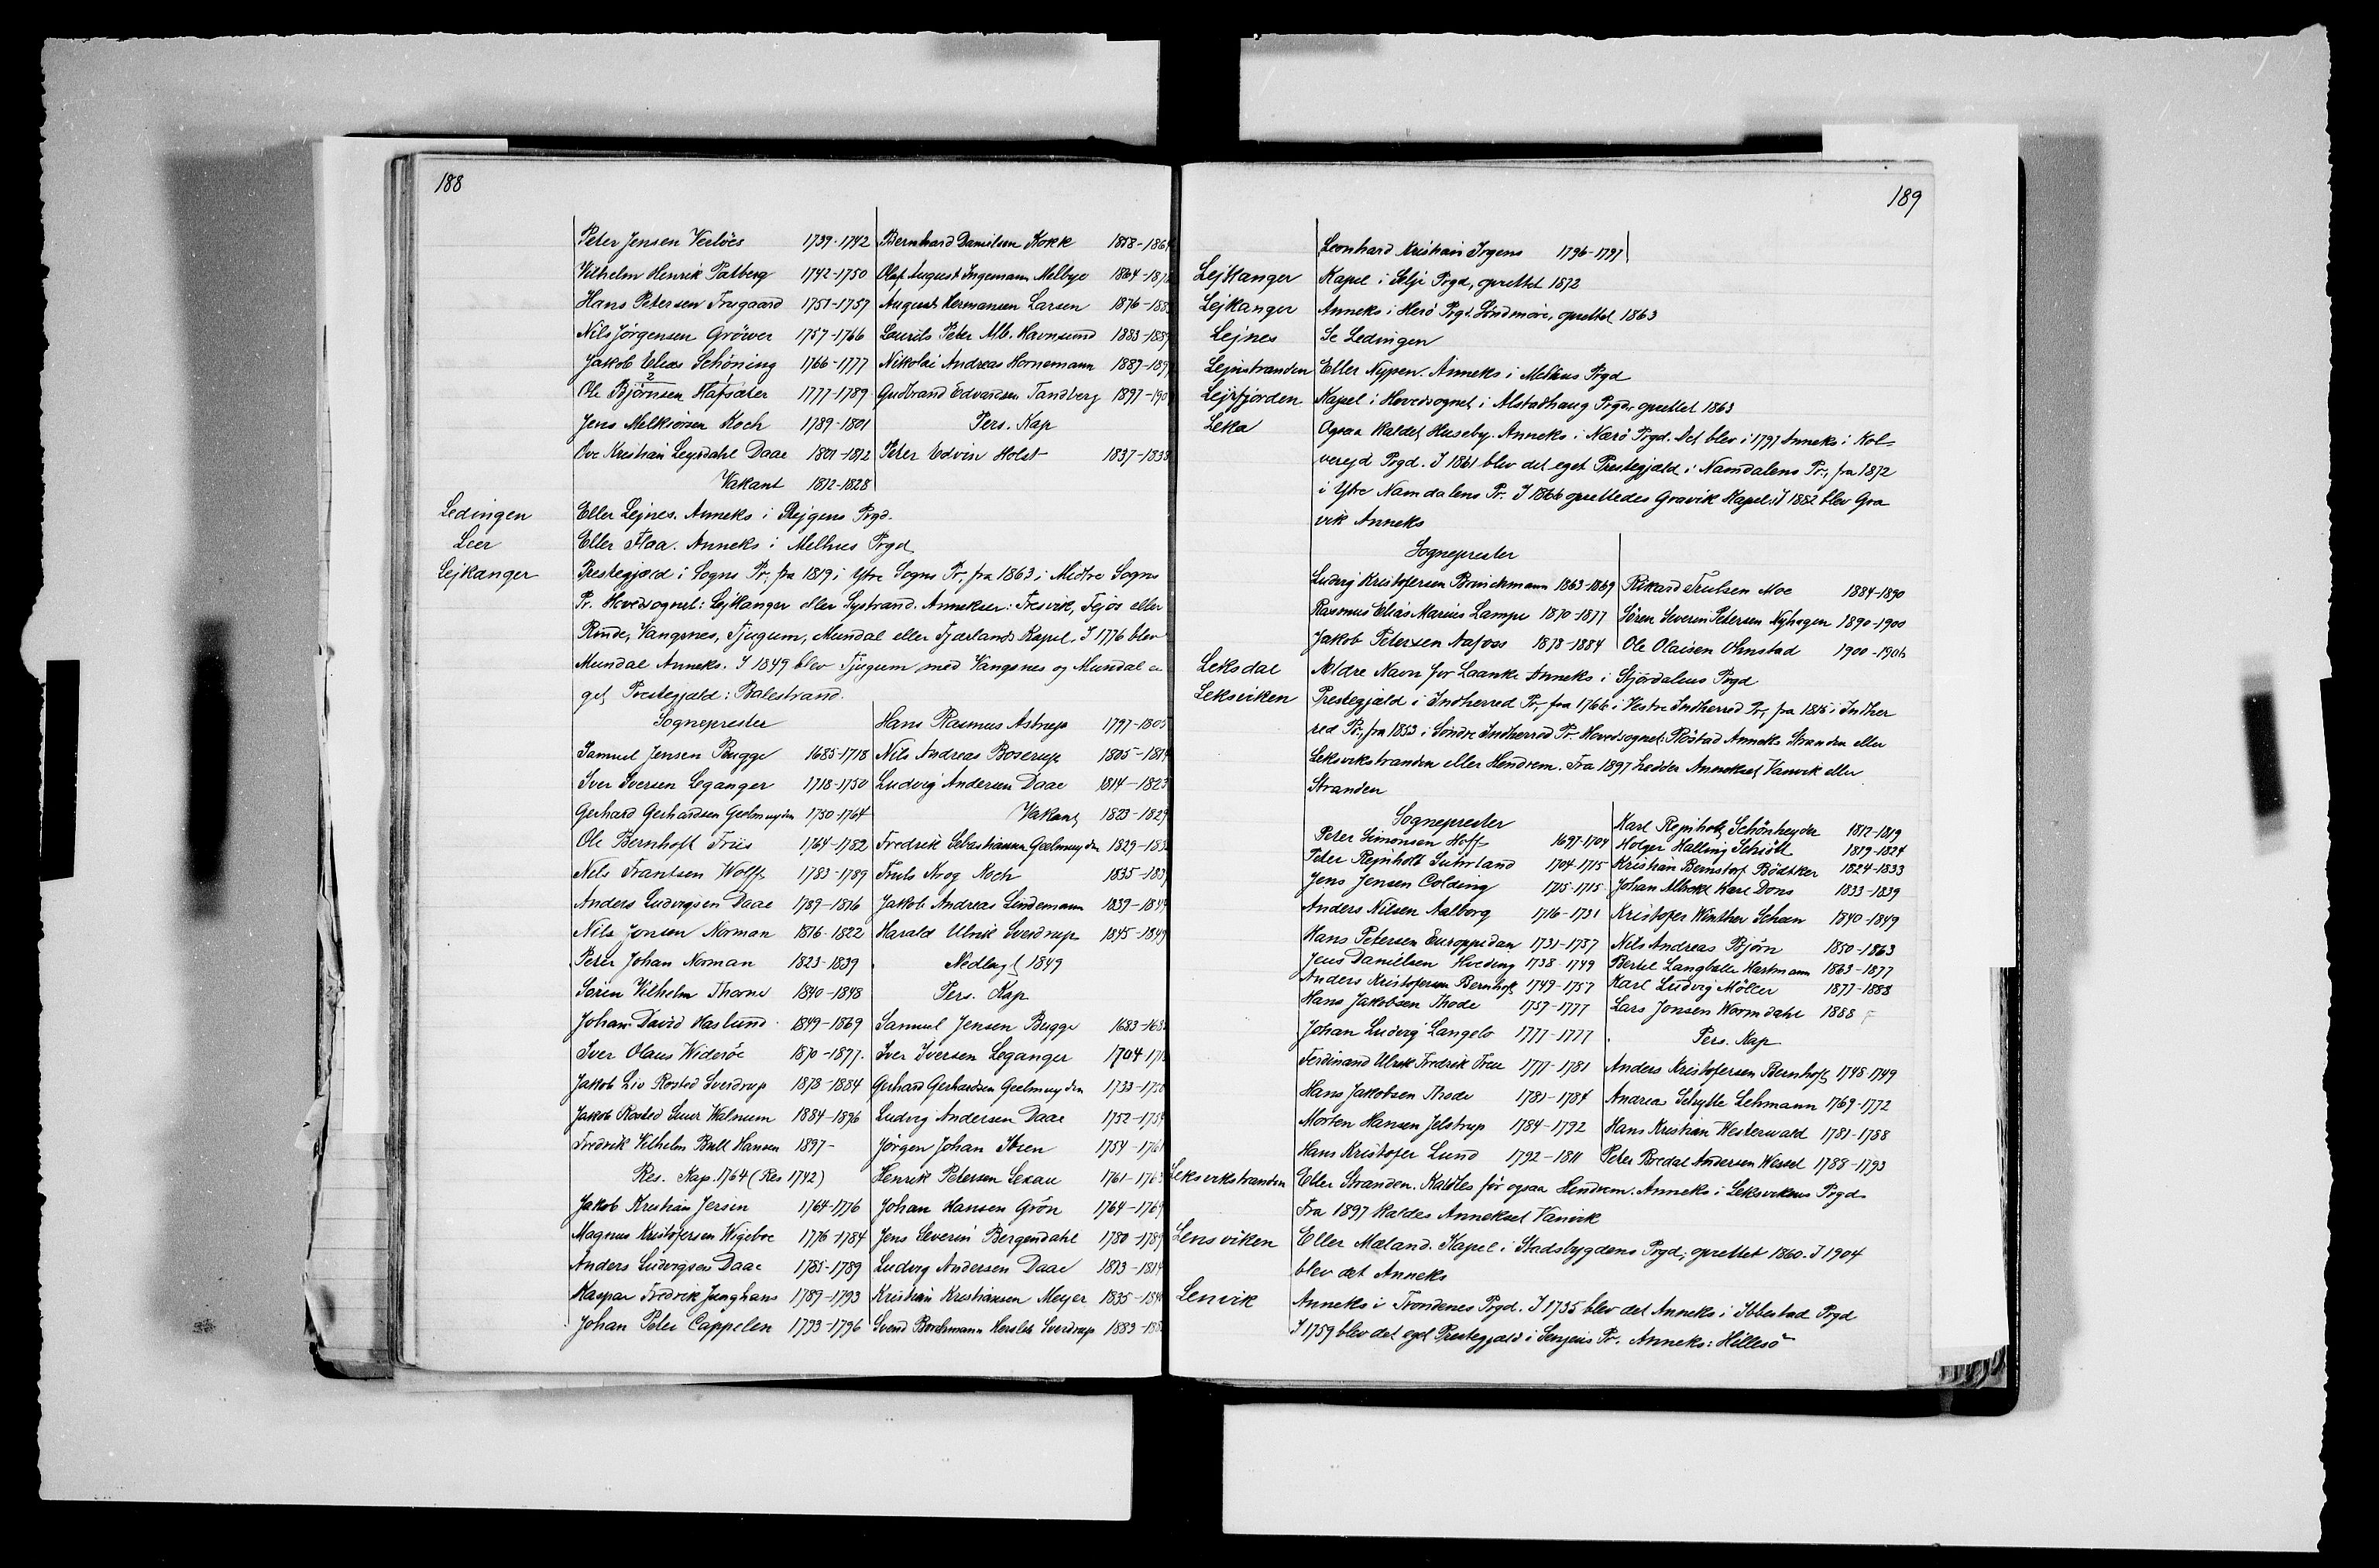 188
Peter Jensen Veelöes 1739-1742 Bernhard Danielsen Kokk 1858-186
Vilhelm Henrik Patberg 1742-1750 Olaf August Ingemann Melbye 1864-187
Hans Petersen Trugaard 1751-1757 August Hermansen Larsen 1876-188
Nils Jörgensen Gröwer 1757-1766 Laurits Peter Alb. Havnsund 1883-188
Jakob Elias Schöning 1766-1777 Nikolai Andreas Hornemann 1887-189
Ole Björnsen Hafsäter 1777-1789 Gudbrand Edvardsen Tandberg 1897-190
Jens Melkiorsen Koch 1789-1801 Pers. Kap
Ove Kristian Legdahl Daae 1801-1812 Peter Edvin Holst 1837-1838
Vakant 1812-1828
Ledingen Eller Lejnes. Anneks i Rejgens Prgd.
Leer Eller Flaa. Anneks i Melhus Prgd
Lejkanger Prestegjæld i Sogns Pr., fra 1819 i Ytre Sogns Pr., fra 1863 i Midtre Sogns
Pr. Hovedsognet: Lejkanger eller Systrand. Annekser: Fresvik, Fejos eller
Rinde, Vangsnes, Tjugum, Mundal eller Fjærlands Kapel. I 1776 blev
Mundal Anneks. I 1849 blev Tjugum med Vangsnes og Mundal e
get Prestegjæld: Balestrand.
Sogneprester Hans Rasmus Astrup 1797-1805
Samuel Jensen Bugge 1685-1718 Nils Andreas Boserup 1805-1814
Iver Iversen Leganger 1718-1750 Ludvig Andersen Daae 1814-1823
Gerhard Gerhardsen Geelmuyden 1750-1764 Vakant 1823-1829
Ole Bernhoft Friis 1764-1782 Fredrik Sebastiansen Geelmuyden 1829-183
Nils Frantsen Wolff 1783-1789 Truls Krog Koch 1835-1839
Anders Ludvigsen Daae 1789-1816 Jakob Andreas Lindemann 1839-184
Nils Jensen Norman 1816-1822 Harald Ulrik Sverdrup 1845-1849
Peter Johan Norman 1823-1839 Nedlagt 1849
Sören Vilhelm Thorne 1840-1848 Pers. Kap
Johan David Haslund 1849-1869 Samuel Jensen Bugge 1683-168
Iver Olaus Wideröe 1870-1877 Iver Iversen Leganger 1704-171
Jakob Liv Rosted Sverdrup 1878-1884 Gerhard Gerhardsen Geelmuyden 1733-175
Jakob Rosted Suur Walnum 1884-1896 Ludvig Andersen Daae 1752-1754
Fredrik Vilhelm Bull Hansen 1897- Jörgen Johan Ibsen 1754-1761
Res. Kap. 1764 (Res 1742) Henrik Petersen Lexau 1761-1763
Jakob Kristian Jersin 1764-1776 Johan Hansen Grön 1764-1769
Magnus Kristofersen Wigeboe 1776-1784 Jens Severin Bergendahl 1780-1789
Anders Ludvigsen Daae 1785-1789 Ludvig Andersen Daae 1813-1814
Kaspar Fredrik Junghans 1789-1793 Kristian Kristiansen Meyer 1835-184
Johan Peter Cappelen 1793-1796 Svend Borchmann Hersleb Sverdrup 1883-188
189
Leonhard Kristian Irgens 1796-1797
Lejkanger Kapel i Selje Prgd, oprettet 1872
Lejkanger Anneks i Herö Prgd. Söndmöre, oprettet 1863
Lejnes Se Ledingen
Lejnstranden Eller Nypen. Anneks i Melhus Prgd
Lejrfjorden Kapel i Hovedsognet i Alstadhaug Prgd, oprettet 1863
Leka Ogsaa kaldet Huseby. Anneks i Nærö Prgd. Det blev i 1797 Anneks i Kol-
verejd Prgd. I 1861 blev det eget Prestegjæld i Namdalens Pr., fra 1872
i Ytre Namdalens Pr. I 1866 oprettedes Gravik Kapel. I 1882 blev Gra
vik Anneks
Sogneprester
Ludvig Kristofersen Brinchmann 1863-1869 Rikard Trulsen Moe 1884-1890
Rasmus Elias Marius Lampe 1870-1877 Sören Severin Petersen Nyhagen 1890-1900
Jakob Petersen Aafoss 1878-1884 Ole Olaisen Öhnstad 1900-1906
Leksdal Ældre Navn for Laanke Anneks i Stjördalens Prgd
Leksviken Prestegjæld i Indherred Pr., fra 1766 i Vestre Indherred Pr., fra 1815 i Indher
red Pr., fra 1853 i Söndre Indherred Pr. Hovedsognet: Röstad Anneks Stranden eller
Leksvikstranden eller Hendrem. Fra 1897 hedder Annekset Vanvik eller
Stranden
Sogneprester Karl Rejnholt Schönheyder 1812-1819
Peter Simonsen Hoff 1697-1704 Holger Halling Schiött 1819-1824
Peter Rejnholt Suhrland 1704-1715 Kristian Bernstorf Bödtker 1824-1833
Jens Jensen Colding 1715-1715 Johan Albrekt Karl Dons 1833-1839
Anders Nilsen Aalborg 1716-1731 Kristofer Winther Scheen 1840-1849
Hans Petersen Europpidan 1731-1737 Nils Andreas Björn 1850-1863
Jens Danielsen Hveding 1738-1749 Bertel Langballe Hartmann 1863-1877
Anders Kristofersen Bernhoft 1749-1757 Karl Ludvig Möller 1877-1888
Hans Jakobsen Thode 1757-1777 Lars Jonsen Wormdahl 1888
Johan Ludvig Langelo 1777-1777 Pers. Kap
Ferdinand Ulrik Fredrik Treu 1777-1781 Anders Kristofersen Bernhoft 1748-1749
Hans Jakobsen Thode 1781-1784 Andreas Schytte Lehmann 1769-1772
Morten Hansen Jelstrup 1784-1792 Hans Kristian Westerwald 1781-1788
Hans Kristofer Lund 1792-1811 Peter Roedal Andersen Wessel 1788-1793
Leksvikstranden Eller Stranden. Kaldtes för ogsaa Hindrem. Anneks i Leksvikens Prgd
Fra 1897 kaldes Annekset Vanvik
Lensviken Eller Mæland. Kapel i Stadsbygdens Prgd, oprettet 1860. I 1904
blev det Anneks
Lenvik Anneks i Trondenes Prgd. I 1735 blev det Anneks i Ibbestad Prgd
I 1759 blev det eget Prestegjæld i Senjens Pr. Anneks: Hillesö